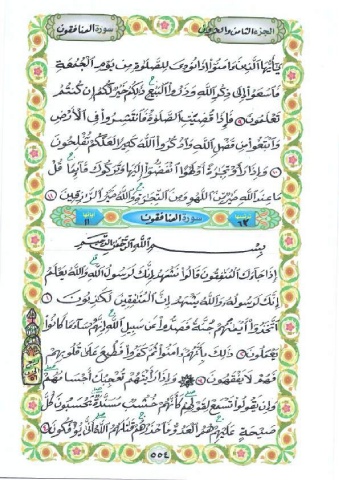 الجزء الثامن والعشرون
سورة المنافقون
يأيها الذين ءامنوا إذا نودى للصلوة من يوم الجمعة
فاسعوا إلى ذكر الله وذروا البيع ذلكم خير لكم إن كنتم
تعلمون ٩ فإذا قضيت الصلوة فانتشروا فى الأرض
وابتغوا من فضل الله واذكروا الله كثيرا لعلكم تفلحون
١٠ وإذا رأوا تجرة أو لهوا انفضوا إليها وتركوك قائما قل
ما عند الله خير من اللهو ومن التجرة والله خير الرزقين ١١
ترتيبها ٦٣
سورة المنافقون
آياتها ١١
بسم الله الرحمن الرحيم
إذا جاءك المنفقون قالوا نشهد إنك لرسول الله والله يعلم
إنك لرسوله والله يشهد إن المنفقين لكذبون ١
اتخذوا أيمنهم جنة فصدوا عن سبيل الله إنهم ساء ما كانوا
يعملون ٢ ذلك بأنهم ءامنوا ثم كفروا فطبع على قلوبهم
فهم لا يفقهون ٣ وإذا رأيتهم تعجبك أجسامهم
وإن يقولوا تسمع لقولهم كأنهم خشب مسندة يحسبون كل
صيحة عليهم هم العدو فاحذرهم قتلهم الله أنى يؤفكون ٤
٥٥٤